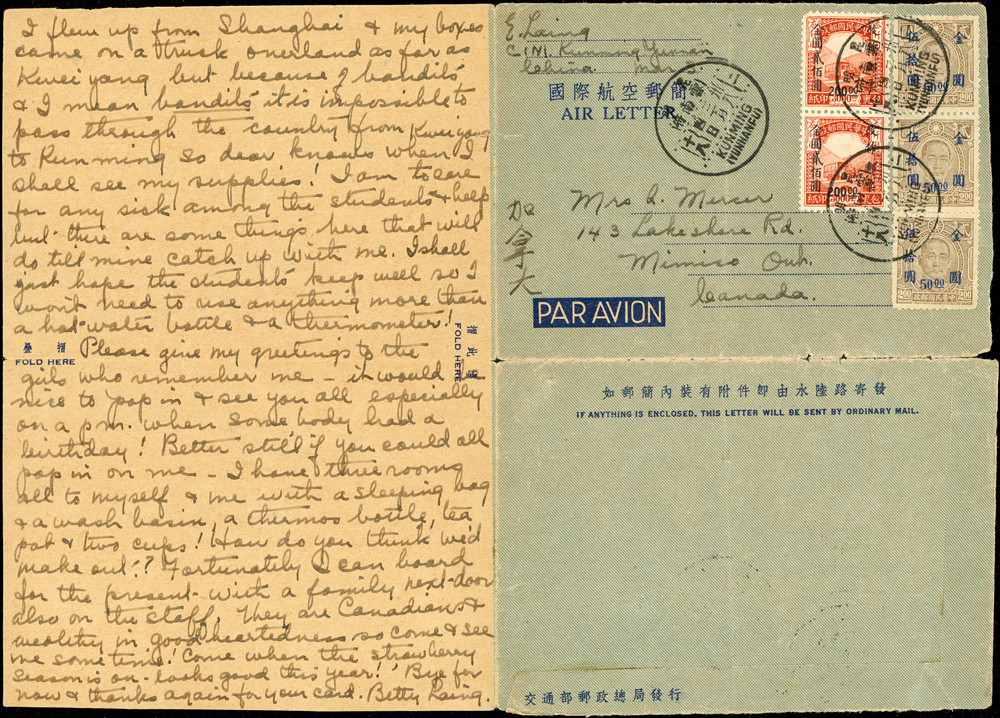 I flew up from Shanghai & my boxes
came on a truck overland as far as
Kweiyang but because of bandits
& I mean bandits it is impossible to
pass through the country from Kweiyang
to Kunming so dear knows when I
shall see my supplies! I am to care
for any sick among the students & help
but there are some things here that will
do till mine catch up with me. I shall
just hope the students keep well so I
won't need to use anything more than
a hot-water bottle & a thermometer!
Please give my greetings to the
girls who remember me - it would be
nice to pop in & see you all especially
on a p.m. when somebody had a
birthday! Better still if you could all
pop in on me - I have three rooms
all to myself & me with a sleeping bag
& a wash basin, a thermos bottle, tea
pot & two cups! How do you think we'd
make out!? Fortunately I can board
for the present with a family next-door
also on the staff. They are Canadians &
wealthy in good heartedness so come & see
me some time! Come when the strawberry
season is on - looks good this year! Bye for
now & thanks again for your card. Betty Laing.
疊 摺
FOLD HERE
摺 此 處
FOLD HERE
E. Laing
Kunming Yunnan
China
國際航空郵簡
AIR LETTER
PAR AVION
Mrs A. Mercer
143 Lakeshore Rd.
Mimico Ont.
Canada.
加拿大
KUNMING
YUNNANFU
金圓貳佰圓
200.00
金圓貳佰圓
200.00
金圓
伍拾圓
金圓
伍拾圓
50.00
金圓
伍拾圓
50.00
如郵簡內裝有附件即由水陸路寄發
IF ANYTHING IS ENCLOSED, THIS LETTER WILL BE SENT BY ORDINARY MAIL.
交通部郵政總局發行